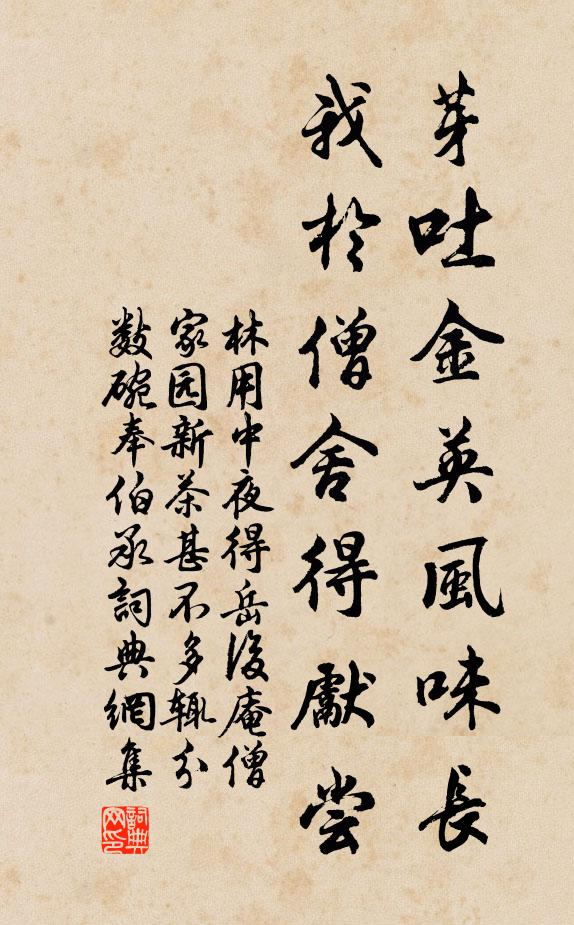 芽吐金英風味長
我於僧舍得獻尝
林用中夜得岳後庵僧
家园新茶甚不多輒分
數碗奉伯承詞典網集
詞典
网印